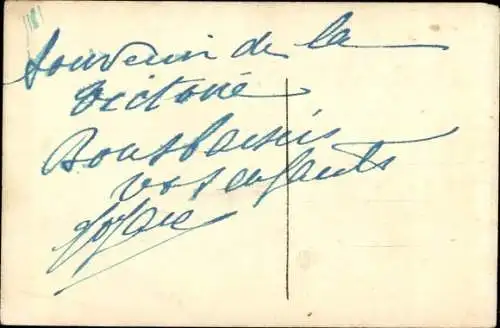 Souvenir de la
Victoire
Bons baisers
vos enfants